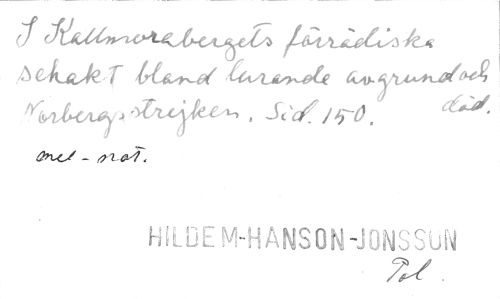 I Kallmorabergets förrädiska
schakt bland lurande avgrund och
död.
Norbergsstrejken. Sid. 150.
mel-not.
HILDEM-HANSON-JONSSON
Pol.